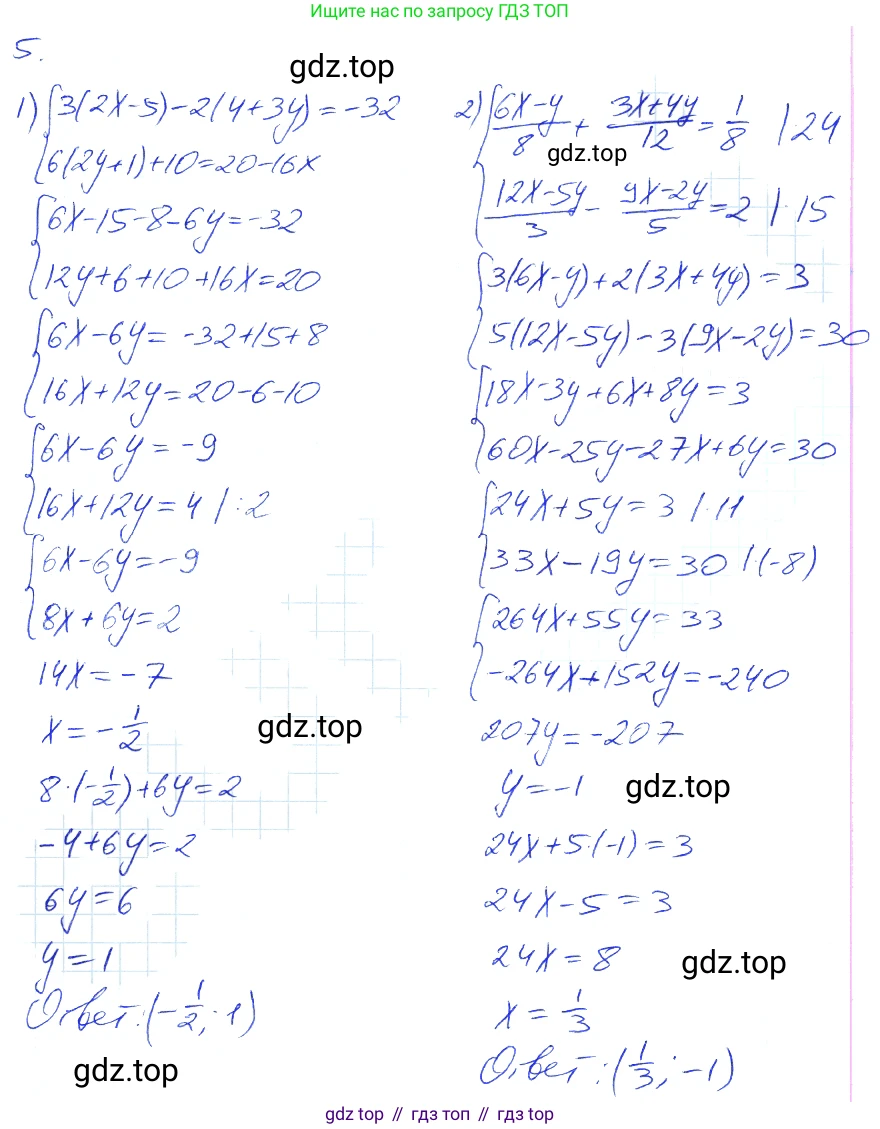 Ищите нас по запросу ГДЗ ТОП
5.
gdz.top
1) {3(2x-5)-2(4+3y)=-32
{6(2y+1)+10=20-16x
{6x-15-8-6y=-32
{12y+6+10+16x=20
{6x-6y=-32+15+8
{16x+12y=20-6-10
{6x-6y=-9
{16x+12y=4 |:2
{6x-6y=-9
{8x+6y=2
14x=-7
x=-1/2
gdz.top
8·(-1/2)+6y=2
-4+6y=2
6y=6
y=1
Ответ:(-1/2; 1)
gdz.top
2) {(6x-y)/8 + (3x+4y)/12 = 1/8 |·24
gdz.top
{(12x-5y)/3 - (9x-2y)/5 = 2 |·15
{3(6x-y)+2(3x+4y)=3
{5(12x-5y)-3(9x-2y)=30
{18x-3y+6x+8y=3
{60x-25y-27x+6y=30
{24x+5y=3 |·11
{33x-19y=30 |·(-8)
{264x+55y=33
{-264x+152y=-240
207y=-207
y=-1
gdz.top
24x+5·(-1)=3
24x-5=3
24x=8
gdz.top
x=1/3
Ответ:(1/3; -1)
gdz top // гдз топ // gdz top